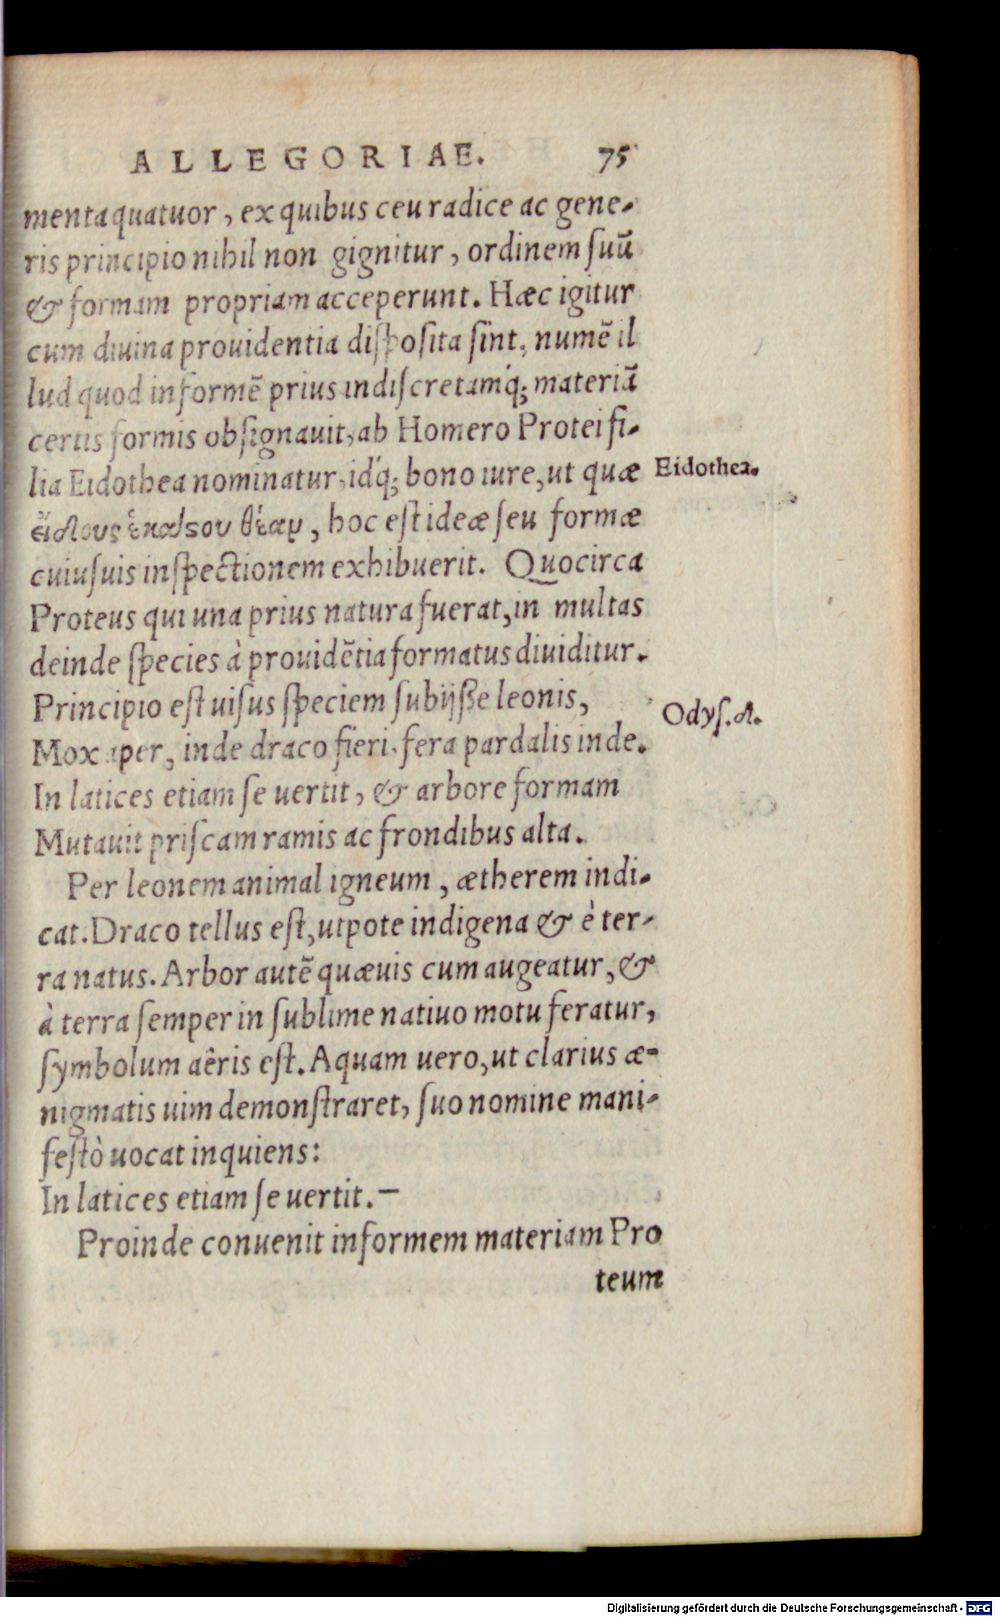 ALLEGORIAE. 75
menta quatuor, ex quibus ceu radice ac gene-
ris principio nihil non gignitur, ordinem suũ
& formam propriam acceperunt. Hæc igitur
cum diuina prouidentia disposita sint, numẽ il
lud quod informẽ prius indiscretamq́; materiã
certis formis obsignauit, ab Homero Protei fi-
lia Eidothea nominatur, idq́; bono iure, ut quæ
Eidothea.
εἴδους ἑκάστου θέαν, hoc est ideæ seu formæ
cuiusuis inspectionem exhibuerit. Quocirca
Proteus qui una prius natura fuerat, in multas
deinde species à prouidẽtia formatus diuiditur.
Principio est uisus speciem subijsse leonis,
Odys. δ.
Mox aper, inde draco fieri, fera pardalis inde.
In latices etiam se uertit, & arbore formam
Mutauit priscam ramis ac frondibus alta.
Per leonem animal igneum, ætherem indi-
cat. Draco tellus est, utpote indigena & è ter-
ra natus. Arbor autẽ quæuis cum augeatur, &
à terra semper in sublime natiuo motu feratur,
symbolum aêris est. Aquam uero, ut clarius æ-
nigmatis uim demonstraret, suo nomine mani-
festò uocat inquiens:
In latices etiam se uertit.—
Proinde conuenit informem materiam Pro
teum
Digitalisierung gefördert durch die Deutsche Forschungsgemeinschaft - DFG